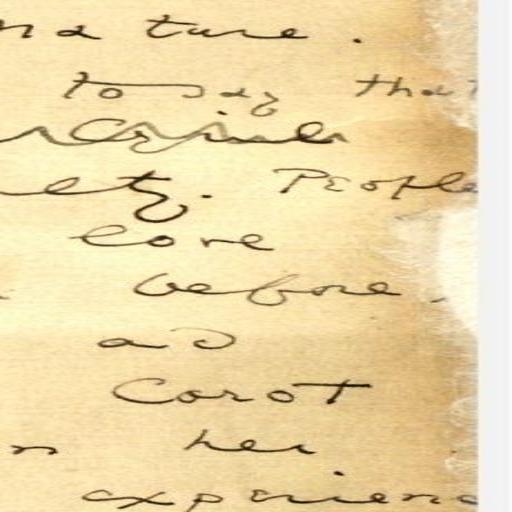 nature.
to say that
ety. People
before.
as
Corot
her
experienc